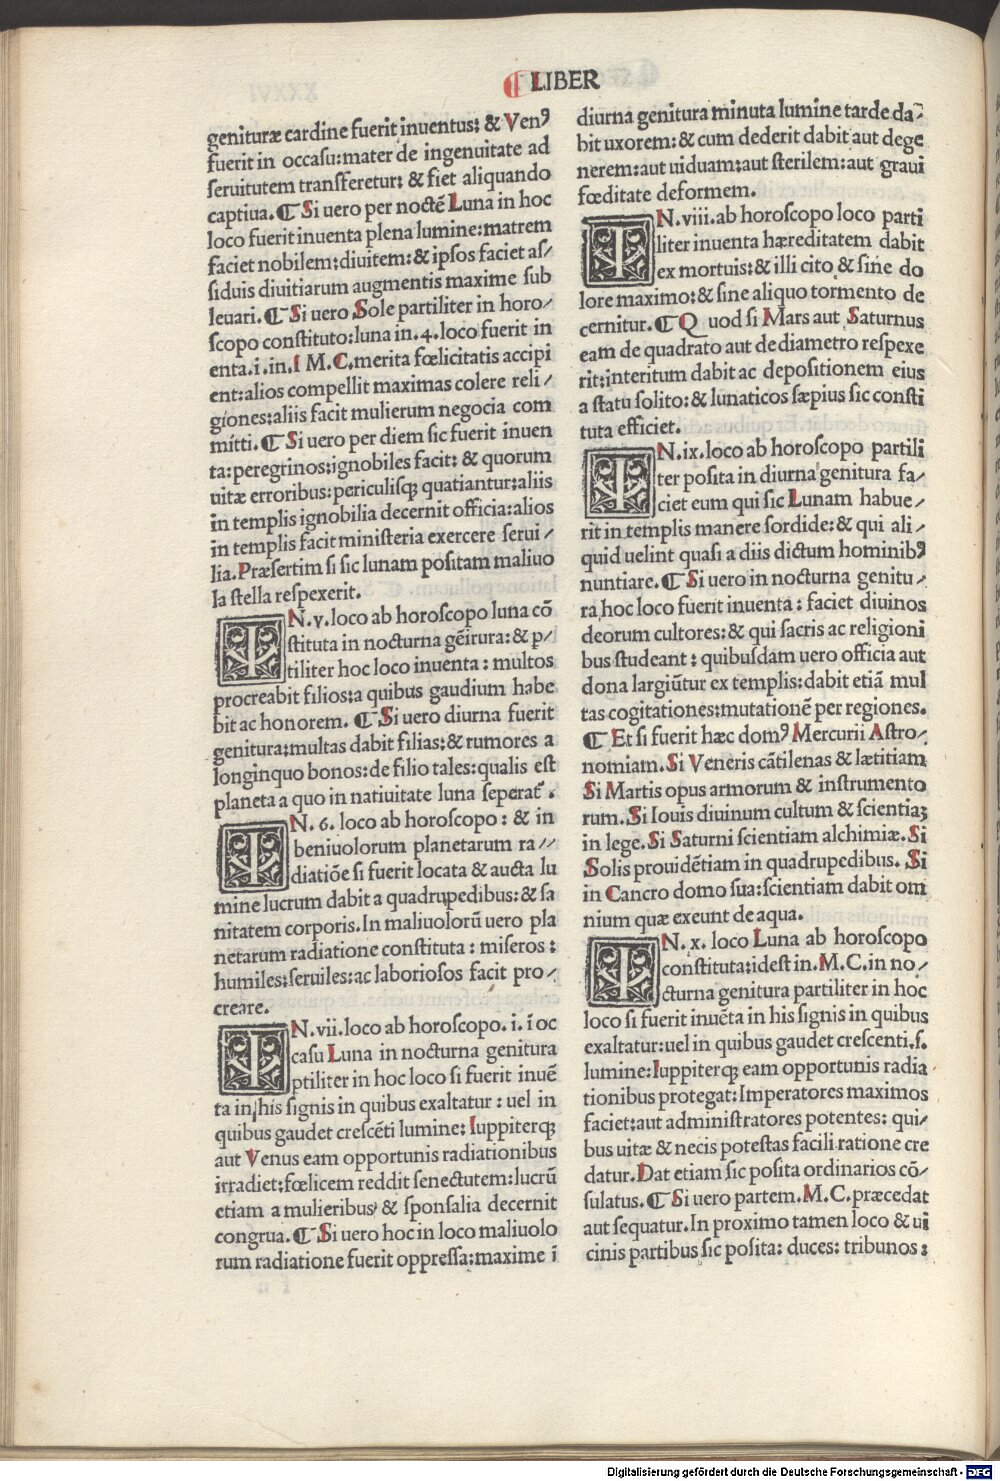 ¶ LIBER
genituræ cardine fuerit inuentus: & Venꝰ
fuerit in occasu:mater de ingenuitate ad
seruitutem transferetur: & fiet aliquando
captiua. ¶ Si uero per noctē Luna in hoc
loco fuerit inuenta plena lumine:matrem
faciet nobilem:diuitem:& ipsos faciet as/
siduis diuitiarum augmentis maxime sub
leuari. ¶ Si uero Sole partiliter in horo/
scopo constituto:luna in .4. loco fuerit in
enta.i.in.I M.C.merita fœlicitatis accipi
ent:alios compellit maximas colere reli/
giones:aliis facit mulierum negocia com
mitti. ¶ Si uero per diem sic fuerit inuen
ta:peregrinos:ignobiles facit: & quorum
uitæ erroribus:periculisqꝫ quatiantur:aliis
in templis ignobilia decernit officia:alios
in templis facit ministeria exercere serui/
lia.Præsertim si sic lunam positam maliuo
la stella respexerit.
IN.v.loco ab horoscopo luna cō
stituta in nocturna gēirura:& p/
tiliter hoc loco inuenta : multos
procreabit filios:a quibus gaudium habe
bit ac honorem. ¶ Si uero diurna fuerit
genitura:multas dabit filias:& rumores a
longinquo bonos:de filio tales:qualis est
planeta a quo in natiuitate luna seperat᷑.
IN. 6. loco ab horoscopo : & in
beniuolorum planetarum ra//
diatiōe si fuerit locata & aucta lu
mine lucrum dabit a quadrupedibus:& sa
nitatem corporis.In maliuolorū uero pla
netarum radiatione constituta : miseros :
humiles:seruiles:ac laboriosos facit pro/
creare.
IN.vii.loco ab horoscopo. i. ī oc
casu Luna in nocturna genitura
ptiliter in hoc loco si fuerit inuē
ta in his signis in quibus exaltatur : uel in
quibus gaudet crescēti lumine: Iuppiterqꝫ
aut Venus eam opportunis radiationibus
irradiet:fœlicem reddit senectutem:lucrū
etiam a mulieribus & sponsalia decernit
congrua. ¶ Si uero hoc in loco maliuolo
rum radiatione fuerit oppressa:maxime ī
diurna genitura minuta lumine tarde da/
bit uxorem:& cum dederit dabit aut dege
nerem:aut uiduam:aut sterilem:aut graui
fœditate deformem.
IN.viii.ab horoscopo loco parti
liter inuenta hæreditatem dabit
ex mortuis:& illi cito & sine do
lore maximo:& sine aliquo tormento de
cernitur. ¶ Quod si Mars aut Saturnus
eam de quadrato aut de diametro respexe
rit:interitum dabit ac depositionem eius
a statu solito:& lunaticos sæpius sic consti
tuta efficiet.
IN.ix.loco ab horoscopo partili
ter posita in diurna genitura fa/
ciet eum qui sic Lunam habue/
rit in templis manere sordide:& qui ali/
quid uelint quasi a diis dictum hominibꝰ
nuntiare. ¶ Si uero in nocturna genitu/
ra hoc loco fuerit inuenta : faciet diuinos
deorum cultores:& qui sacris ac religioni
bus studeant : quibusdam uero officia aut
dona largiūtur ex templis:dabit etiā mul
tas cogitationes:mutationē per regiones.
¶ Et si fuerit hæc domꝰ Mercurii Astro/
nomiam.Si Veneris cātilenas & lætitiam
Si Martis opus armorum & instrumento
rum.Si Iouis diuinum cultum & scientiaꝫ
in lege.Si Saturni scientiam alchimiæ.Si
Solis prouidētiam in quadrupedibus. Si
in Cancro domo sua:scientiam dabit om
nium quæ exeunt de aqua.
IN. x. loco Luna ab horoscopo
constituta:idest in.M.C.in no/
cturna genitura partiliter in hoc
loco si fuerit inuēta in his signis in quibus
exaltatur:uel in quibus gaudet crescenti.s.
lumine:Iuppiterqꝫ eam opportunis radia
tionibus protegat:Imperatores maximos
faciet:aut administratores potentes: qui/
bus uitæ & necis potestas facili ratione cre
datur.Dat etiam sic posita ordinarios cō/
sulatus. ¶ Si uero partem.M.C.præcedat
aut sequatur.In proximo tamen loco & ui
cinis partibus sic posita: duces: tribunos :
Digitalisierung gefördert durch die Deutsche Forschungsgemeinschaft - DFG